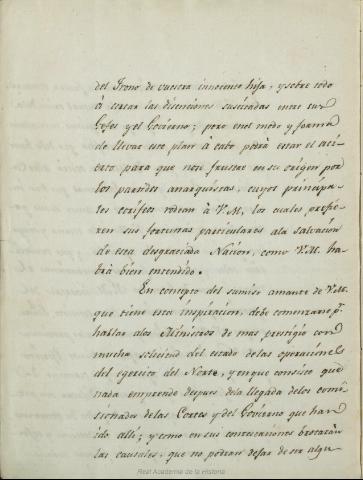 del Trono de vuestra innocente hija; y sobre todo
à cortar las disenciones suscitadas entre sus
Gefes y el Govierno; pero en el modo y forma
de llevar este plan à cabo podrà estar el aci-
erto para que no se frustre en su origen por
los partidos anarquistas, cuyos principa-
les corifeos rodean à V.M, los cuales prefie-
ren sus fortunas particulares a la salvacion
de esta desgraciada Nacion, como V.M. ha-
brà bien entendido.
En concepto del sumiso amante de V.M.
que tiene esta inspiracion, debe comenzarse pr
hablar a los Ministros de mas prestigio con
mucha solicitud del estado de las operaciones
del egercito del Norte, y en que consiste que
nada emprende despues de la llegada de los comi-
sionados de las Cortes y del Govierno que han
ido alli; y como en sus contestaciones brotaràn
las causales, que no podran dejar de ser algu-
Real Academia de la Historia